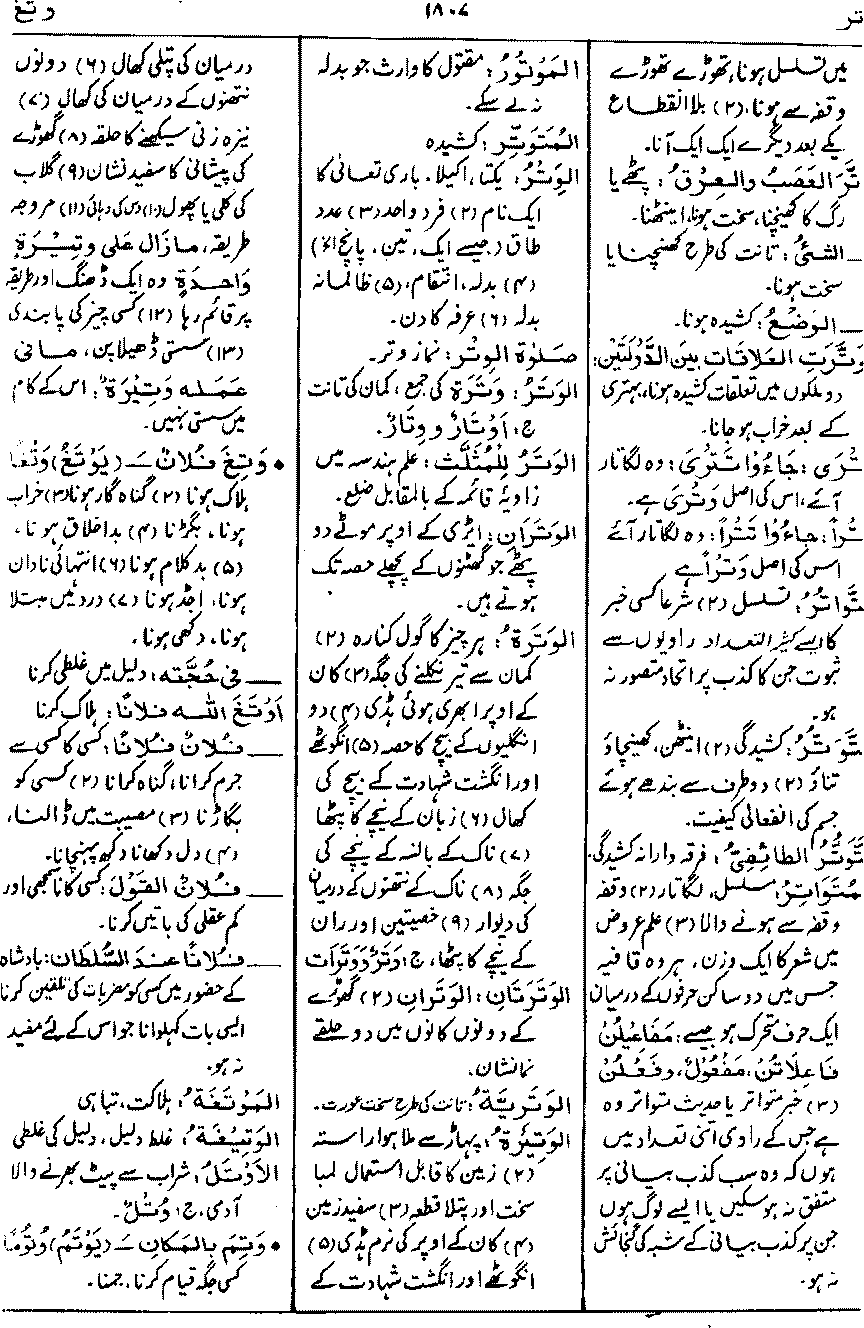 تر
۱۸۰۷
وتغ
میں تسلسل ہونا، تھوڑے تھوڑے
وقفہ سے ہونا، (۲) بلا انقطاع
یکے بعد دیگرے ایک ایک آنا۔
تَّرَ العَصَبُ والعِرْقُ: پٹھے یا
رگ کا کھنچنا، سخت ہونا، اینٹھنا۔
ــ الشیُٔ: تانت کی طرح کھنچنا یا
سخت ہونا۔
ــ الوَضْعُ: کشیدہ ہونا۔
وَتَّرَتِ العَلاقات بین الدَّوْلَتَیْن:
دو ملکوں میں تعلقات کشیدہ ہونا، بہتری
کے بعد خراب ہو جانا۔
تْرَی: جَاءُوْا تَتْرَی: وہ لگاتار
آئے، اس کی اصل وَتْرَی ہے۔
تْراً: جاءُوْا تَتْراً: وہ لگاتار آئے
اس کی اصل وَتْراً ہے
تَّواتُرُ: تسلسل (۲) شرعاً کسی خبر
کا ایسے کثیر التعداد راویوں سے
ثبوت جن کا کذب پر اتحاد متصور نہ
ہو۔
تَّوَتُّرُ: کشیدگی (۲) اینٹھن، کھینچاؤ
تناؤ (۲) دو طرف سے بندھے ہوئے
جسم کی انفعالی کیفیت۔
تَّوَتُّرُ الطائِفِیُّ: فرقہ وارانہ کشیدگی۔
مُتَواتِرُ: مسلسل، لگاتار (۲) وقفہ
وقفہ سے ہونے والا (۳) علم عروض
میں شعر کا ایک وزن، ہر وہ قافیہ
جس میں دو ساکن حرفوں کے درمیان
ایک حرف متحرک ہو جیسے: مَفَاعِیْلُنْ
فَاعِلَاتُنْ، مَفْعُوْلُنْ، وفَعْلُنْ
(۴) خبر متواتر یا حدیث متواتر وہ
ہے جس کے راوی اتنی تعداد میں
ہوں کہ وہ سب کذب بیانی پر
متفق نہ ہو سکیں یا ایسے لوگ ہوں
جن پر کذب بیانی کے شبہ کی گنجائش
نہ ہو۔
المَوْتُوْرُ: مقتول کا وارث جو بدلہ
نہ لے سکے۔
المُتَوَتِّرُ: کشیدہ
الوِتْرُ: یکتا، اکیلا۔ باری تعالیٰ کا
ایک نام (۲) فرد واحد (۳) عدد
طاق (جیسے ایک، تین، پانچ الخ)
(۴) بدلہ، انتقام، (۵) ظالمانہ
بدلہ (۶) عرفہ کا دن۔
صَلوٰۃُ الوِتْر: نماز وتر۔
الوَتَرُ: وَتَرَۃ کی جمع: کمان کی تانت
ج: اَوْتَارٌ و وِتَارٌ۔
الوَتَرُ لِلْمُثَلَّث: علم ہندسہ میں
زاویۂ قائمہ کے بالمقابل ضلع۔
الوَتَرَانِ: ایڑی کے اوپر موٹے دو
پٹھے جو گھٹنوں کے پچھلے حصہ تک
ہوتے ہیں۔
الوَتَرَۃُ: ہر چیز کا گول کنارہ (۲)
کمان سے تیر نکلنے کی جگہ (۳) کان
کے اوپر ابھری ہوئی ہڈی (۴) دو
انگلیوں کے بیچ کا حصہ (۵) انگوٹھے
اور انگشت شہادت کے بیچ کی
کھال (۶) زبان کے نیچے کا پٹھا
(۷) ناک کے بانسہ کے نیچے کی
جگہ (۸) ناک کے نتھنوں کے درمیان
کی دیوار (۹) خصیتین اور ران
کے نیچے کا پٹھا، ج: وَتَرٌ وَوَتَرَات
الوَتَرَتَان: الوَتَرانِ (۲) گھوڑے
کے دونوں کانوں میں دو حلقے
نما نشان۔
الوَتَرِیَّۃُ: تانت کی طرح سخت عورت۔
الوَتِیْرَۃُ: پہاڑ سے ملا ہوا راستہ
(۲) زمین کا قابل استعمال لمبا
سخت اور پتلا قطعہ (۳) سفید زمین
(۴) کان کے اوپر کی نرم ہڈی (۵)
انگوٹھے اور انگشت شہادت کے
درمیان کی پتلی کھال (۶) دونوں
نتھنوں کے درمیان کی کھال (۷)
نیزہ زنی سیکھنے کا حلقہ (۸) گھوڑے
کی پیشانی کا سفید نشان (۹) گلاب
کی کلی یا پھول (۱۰) دس کی دہائی (۱۱) مروجہ
طریقہ، مازَال علی وتِیْرَۃٍ
وَاحِدَۃٍ وہ ایک ڈھنگ اور طریقہ
پر قائم رہا (۱۲) کسی چیز کی پابندی
(۱۳) سستی ڈھیلاپن، مافی
عَمَلِہ وَتِیْرَۃٌ: اس کے کام
میں سستی نہیں۔
• وَتِغَ فُلانٌ ـَـ (یَوْتَغُ) وَتْغًا
ہلاک ہونا (۲) گناہ گار ہونا (۳) خراب
ہونا، بگڑنا (۴) بداخلاق ہونا،
(۵) بدکلام ہونا (۶) انتہائی نادان
ہونا، اجڈ ہونا (۷) درد میں مبتلا
ہونا، دکھی ہونا۔
ــ فی حُجَّتِہ: دلیل میں غلطی کرنا
اَوْتَغَ اللہ فلانًا: ہلاک کرنا
ــ فُلانٌ فُلانًا: کسی کا کسی سے
جرم کرانا، گناہ کمانا (۲) کسی کو
بگاڑنا (۳) مصیبت میں ڈالنا،
(۴) دل دکھانا دکھ پہنچانا۔
ــ فُلانٌ القَوْلَ: کسی کا ناسمجھی اور
کم عقلی کی باتیں کرنا۔
ــ فُلانًا عندَ السُّلطَان: بادشاہ
کے حضور میں کسی کو مضر بات کی تلقین کرنا
ایسی بات کہلوانا جو اس کے لئے مفید
نہ ہو۔
المَوْتَغَۃُ: ہلاکت، تباہی
الوَتِیْغَۃُ: غلط دلیل، دلیل کی غلطی
الاَوْتَلُ: شراب سے پیٹ بھرنے والا
آدمی، ج: وُتْلٌ۔
• وَتِمَ بالمَکانِ ـَـ (یَوْتَمُ) وُتُومًا
کسی جگہ قیام کرنا، جمنا۔